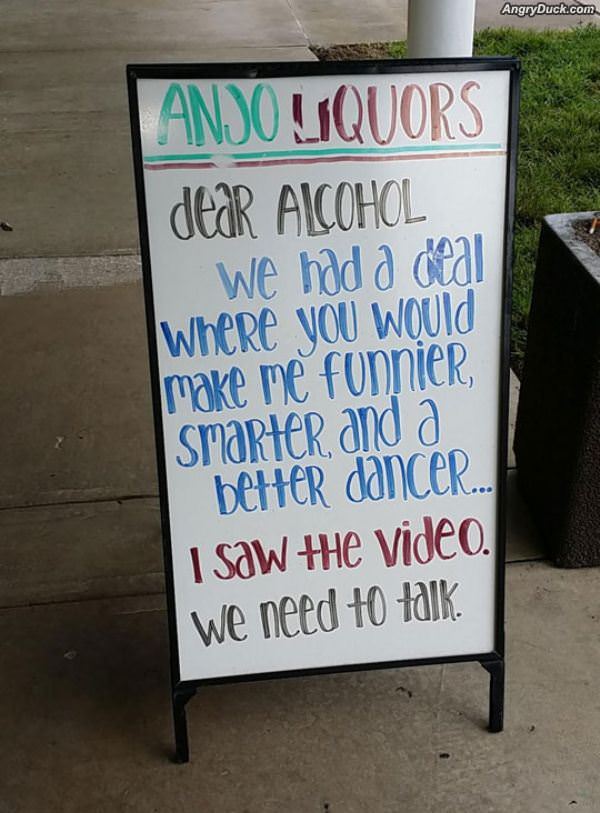 AngryDuck.com
ANJO LIQUORS
deaR ALCOHOL
we had a deal
wheRe you would
make me funnieR,
smaRteR, and a
betteR danceR...
I saw the video.
we need to talk.